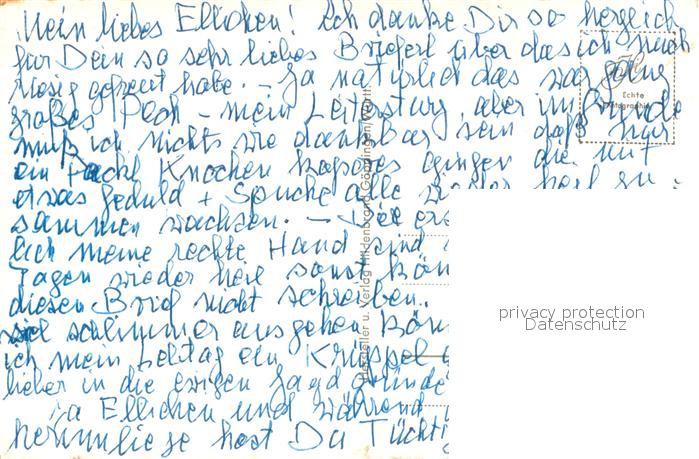 Mein liebes Ellichen! Ich danke Dir so herzlich
für Dein so sehr liebes Brieferl über das ich mich
riesig gefreut habe. - Ja natürlich das war ganz
großes Pech - mein Leitersturz, aber im Grunde
muß ich nichts wie dankbar sein daß nur
ein Knochen kapores gingen die mit
etwas Geduld + Spucke alle wieder heil zu-
sammen wachsen. - Die
lich meine rechte Hand sind
Tagen wieder heil sonst kön
diesen Brief nicht schreiben.
viel schlimmer ausgehen kön
ich mein Lebtag ein Krüppel
lieber in die ewigen Jagdgründe
Ja Ellichen und während
herumliege hast Du Tüchti
Echte
Photographie
Hersteller u. Verlag Hildenbrand Göppingen/Württ.
privacy protection
Datenschutz